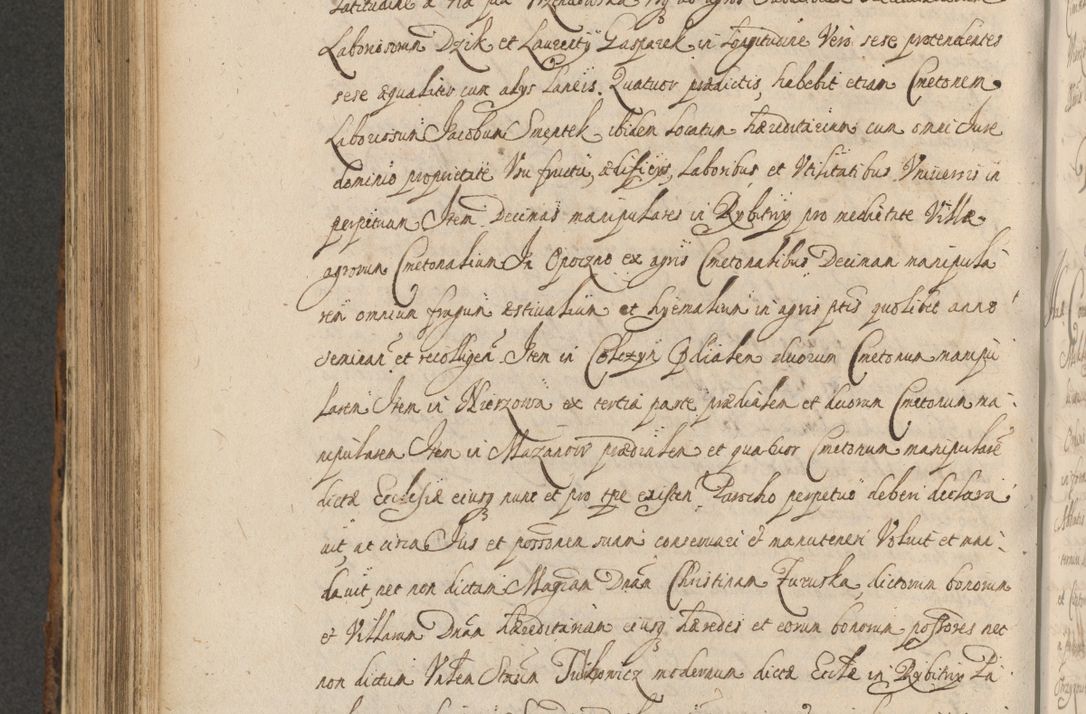 Laboriosorum Dzik et Laurentij Gasparek in Longitudine Vero sese protendentes
sese æqualiter cum alijs Laneis. Quatuor prædictis, habebit etiam Cmetonem
Laboriosum Jacobum Smentek ibidem Locatum hæreditarium cum omni Jure
dominio proprietate Usu fructu, ædificijs, Laboribus et Utilitatibus Universis in
perpetuum Item Decimas manipulares in Rybitwy pro medietate Villæ
agrorum Cmetonalium In Opoczno ex agris Cmetonalibus Decimam manipula
rem omnium frugum æstivalium et hyemalium in agris ptis quolibet anno
seminan et recolligen Item in Cholezyn Pdialem duorum Cmetonum manipu
larem Item in Nierzowa ex tertia parte prædialem et duorum Cmetonum ma
nipularem Item in Mazanow prædialem et quatuor Cmetonum manipulare
dictæ Ecclesiæ eiusq nunc et pro tpe existen Parocho perpetuo deberi declara
vit, ac circa Jus et possonem suam conservari et manuteneri Voluit et man
davit, nec non dictam Magcam Dnam Christinam Zuruska, dictorum bonorum
et Villarum Dnam hæreditariam eiusq hæredes et eorum bonorum possores nec
non dictum Vnlem Stanum Tulkowicz modernum dictæ Ecclæ in Rybitwy Pa